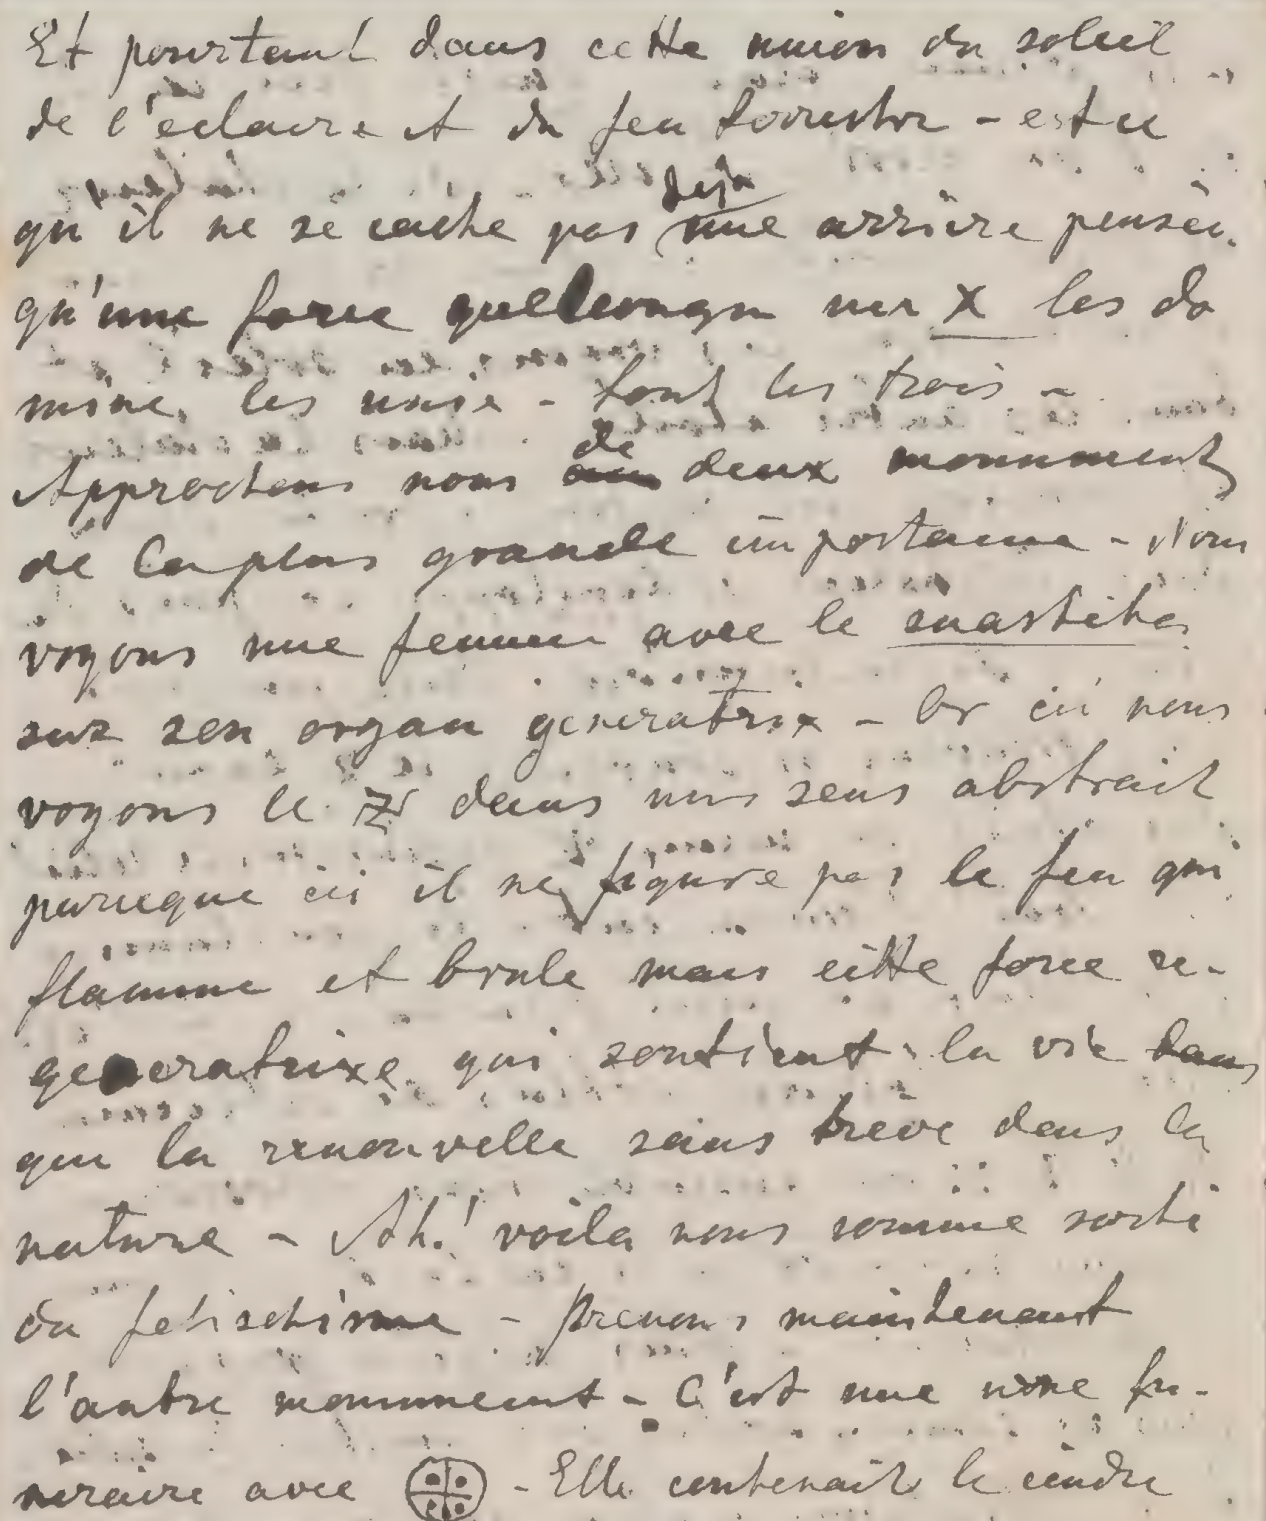 Et pourtant dans cette union du soleil
de l'eclaire et du feu terrestre - est ce
qu'il ne se cache pas déjà une arrière pensée.
qu'une force quelconque un X les do
mine, les unie - tout les trois -
Approchons nous de deux monuments
de la plus grande importance - Nous
voyons une femme avec le suastika
sur son organ generatrix - Or ici nous
voyons le 卐 dans un sens abstrait
parceque ici il ne figure pas le feu qui
flamme et brule mais cette force re-
generatrixe qui soutient la vie dans
qui la renouvelle sans trève dans la
nature - Ah! voila nous somme sorti
du fetischisme - Prenons maintenant
l'autre monument - C'est une urne fu-
neraire avec - Elle contenait le cendre